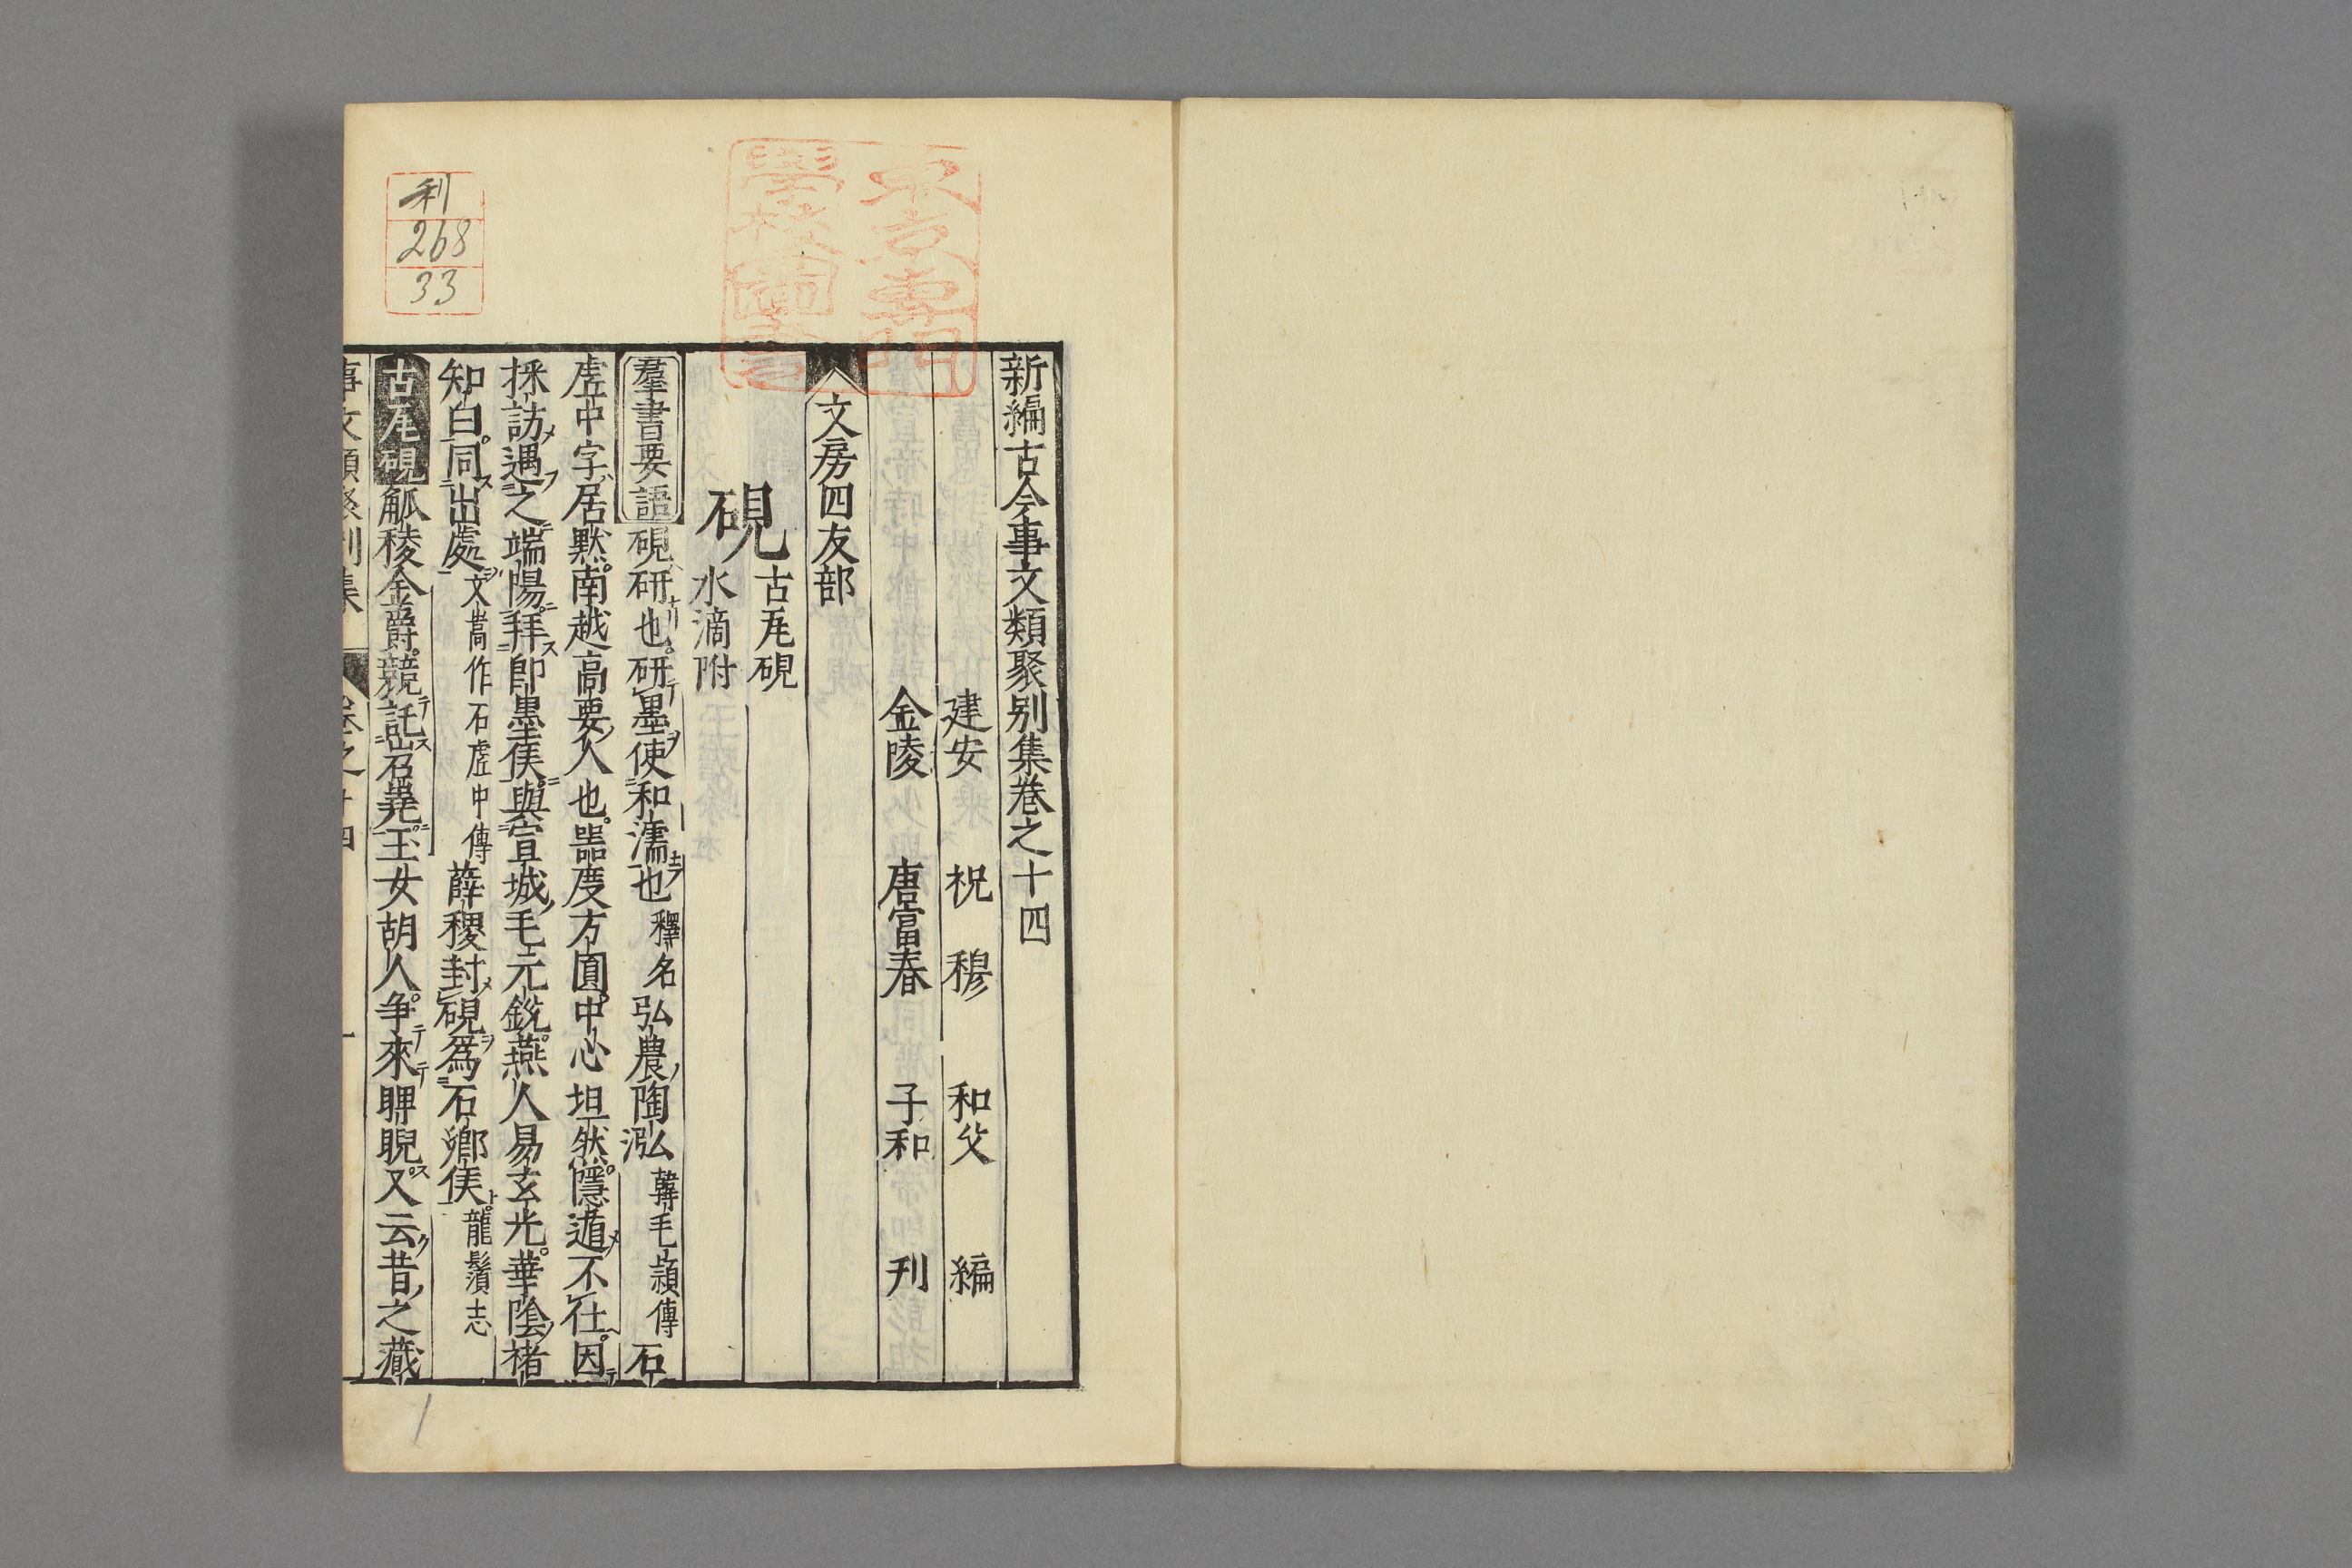 新編古今事文類聚别集卷之十四
建安　祝　穆　和父　編
金陵　唐富春　子和　刋
文房四友部
硯
古尾硯
水滴附
羣書要語 硯研也研墨使和濡也 釋名 弘農陶泓 韓毛頴傳 石
虗中字居默南越高要人也噐度方圓中心坦然隱遁不仕因
採訪遇之端陽拜卽墨侯與宣城毛元銳燕人易玄光華陰褚
知白同出處 文嵩作石虗中傳 薛稷封硯爲石鄉侯 龍鬚志
古尾硯 觚稜金爵競託岧嶤玉女胡人争來睥睨又云昔之藏
事文類聚别集　卷之十四　一
東京專門
學校圖書
利
268
33
1